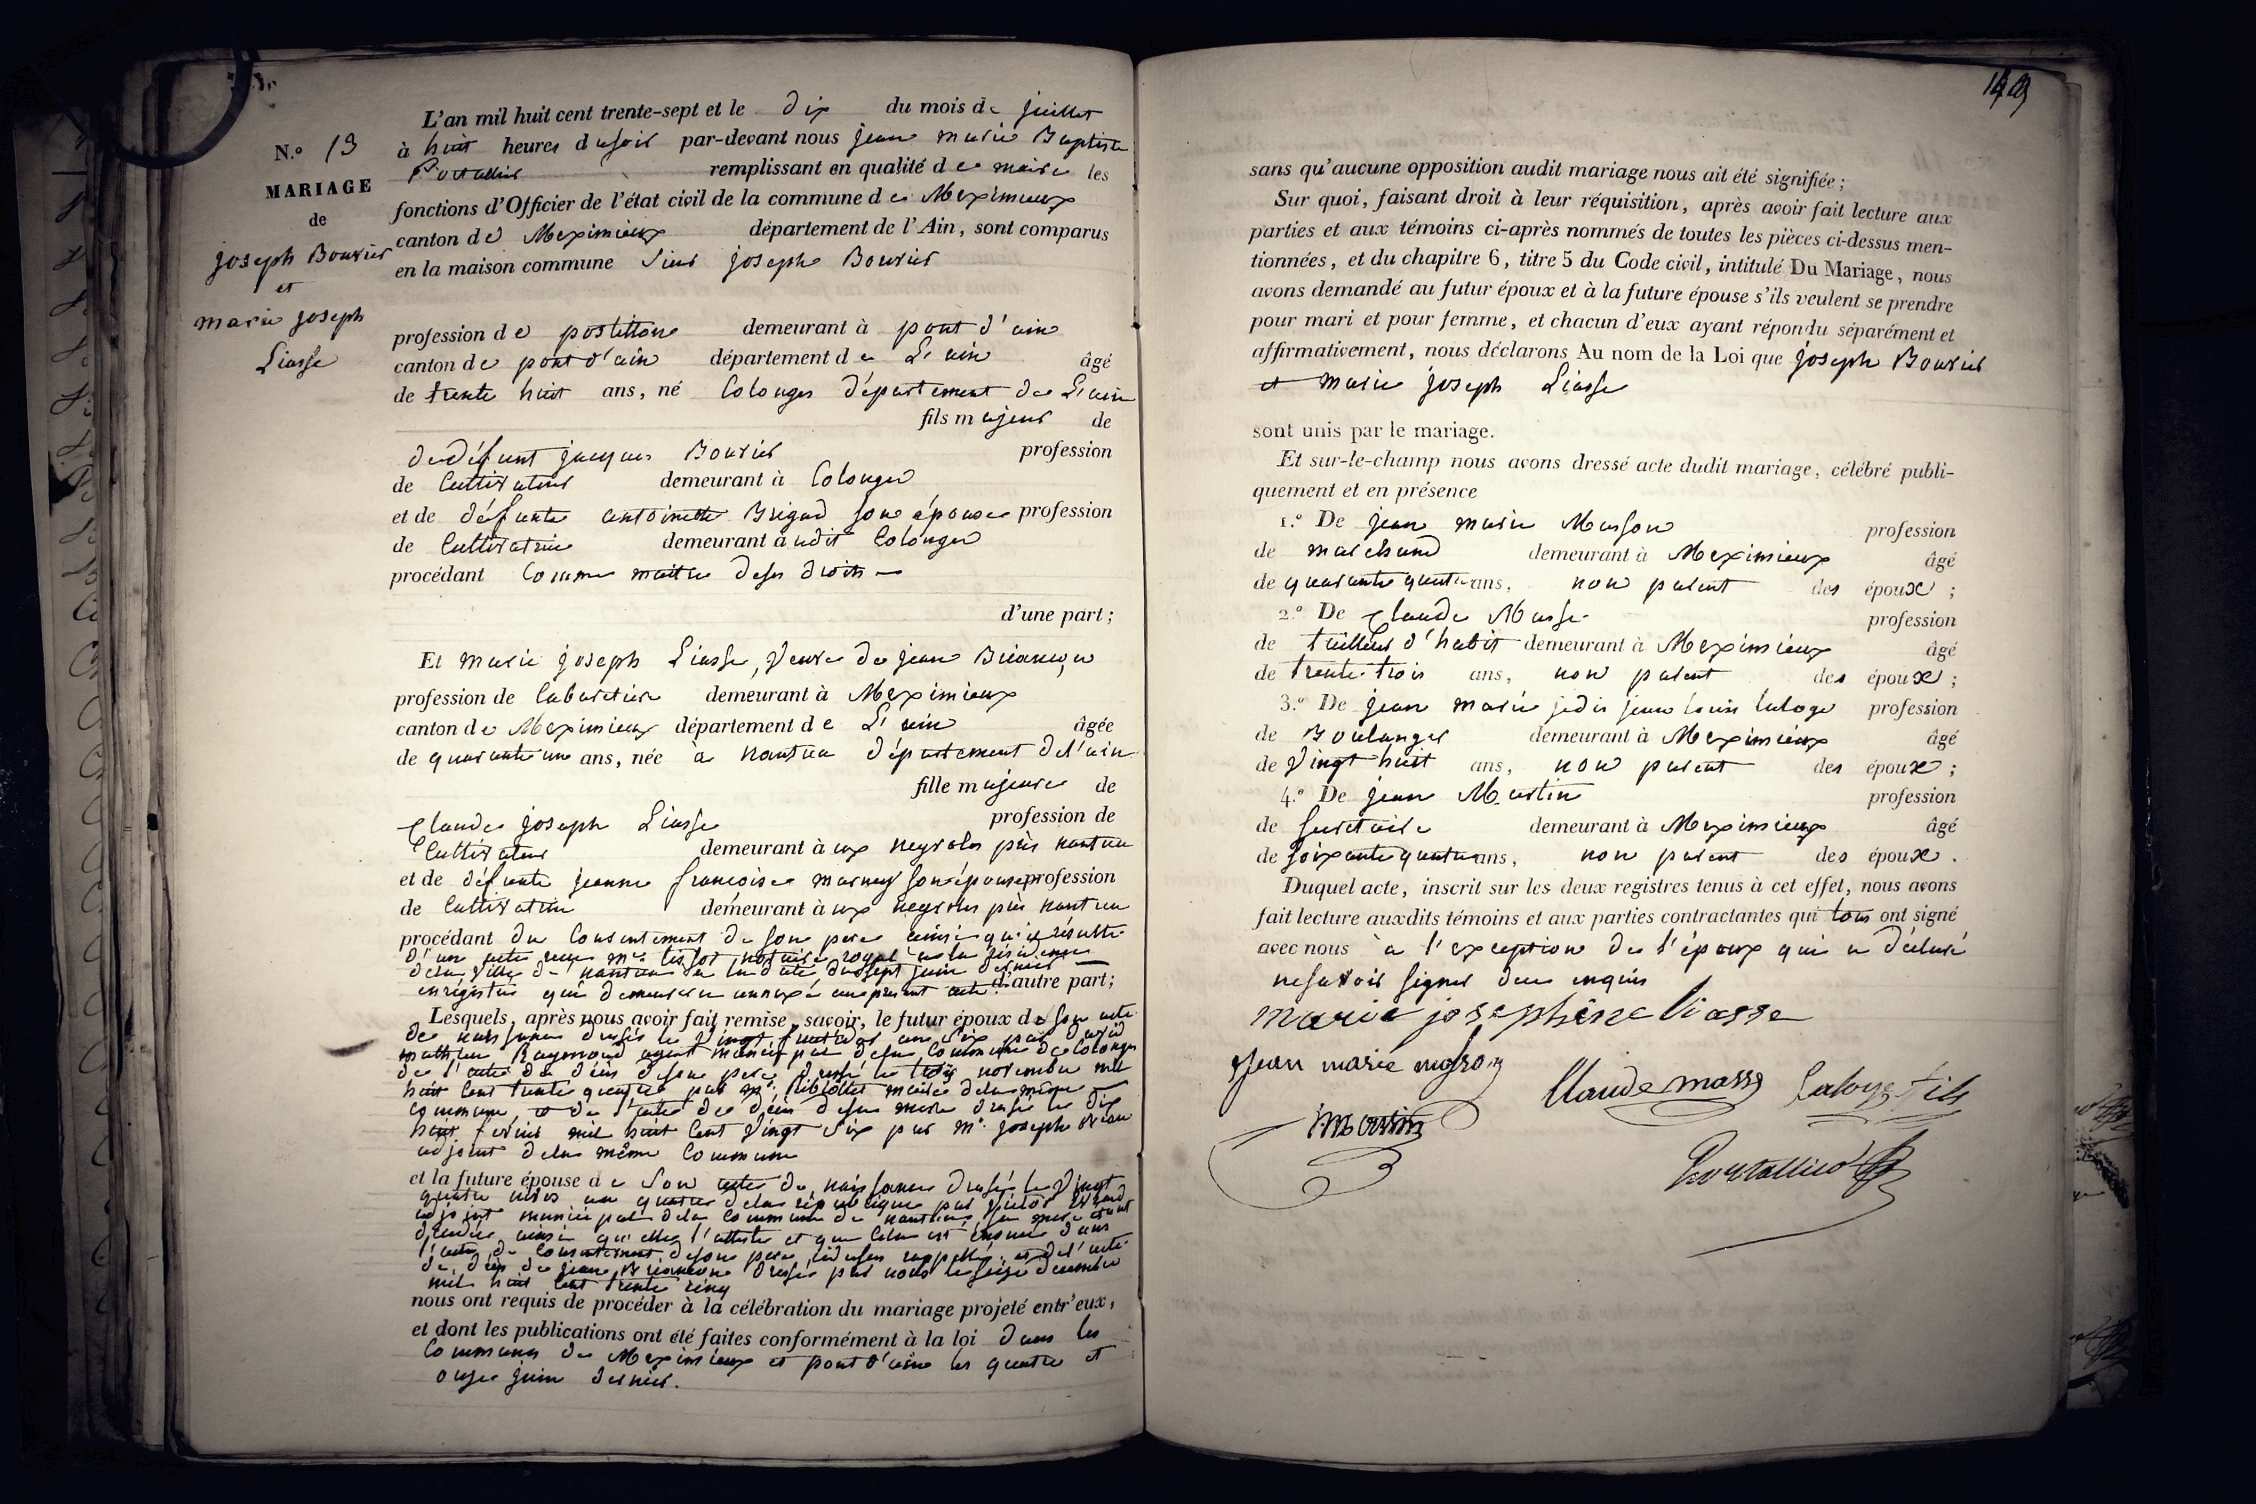 N.o 13
MARIAGE
de
joseph Bouvier
et
marie joseph
Liasse
L'an mil huit cent trente-sept et le dix du mois de juillet
à huit heures du soir par-devant nous jean marie Baptiste
Portallier remplissant en qualité de maire les
fonctions d'Officier de l'état civil de la commune de Meximieux
canton de Meximieux département de l'Ain, sont comparus
en la maison commune Sieur joseph Bouvier
profession de postillon demeurant à pont d'ain
canton de pont d'ain département de L'ain âgé
de trente huit ans, né Colonges département de L'ain
fils majeur de
de défunt jacques Bouvier profession
de Cultivateur demeurant à Colonges
et de défunte antoinette Brigad son épouse profession
de Cultivatrice demeurant audit Colonges
procédant Comme maitre de ses droits
d'une part;
Et marie joseph Liasse, veuve de jean Briançon
profession de Cabaretière demeurant à Meximieux
canton de Meximieux département de L'ain âgée
de quarante une ans, née à nantua département de l'ain
fille majeure de
Claude joseph Liasse profession de
Cultivateur demeurant à aux neyroles près nantua
et de défunte jeanne francoise marney son épouse profession
de Cultivatrice demeurant à aux neyroles près nantua
procédant du Consentement de son père ainsi qu'il résulte
d'un acte reçu me notaire royal à la résidence
de la ville de nantua à la date du sept juin dernier
enrégistré qui demeurera annexé au présent acte. d'autre part;
Lesquels, après nous avoir fait remise, savoir, le futur époux de son acte
de naissance dressé le vingt an six par david
mathieu Raymond agent municipal de la Commune de Colonges
de l'acte de décès de son père dressé le trois novembre mil
huit Cent trente quatre par mr. maire de la même
Commune et de l'acte de décès de sa mère dressé le dix
huit février mil huit Cent vingt Six par mr. joseph
adjoint de la même Commune
et la future épouse de Son acte de naissance dressé le vingt
quatre nivos an quatre de la république par
adjoint municipal de la Commune de nantua, sa mère étant
décédée ainsi qu'elle l'atteste et que Cela est énoncé dans
l'acte de Consentement de son père ci dessus rappellé, et de l'acte
de décès de jean Briançon dressé par nous le seize décembre
mil huit Cent trente cinq
nous ont requis de procéder à la célébration du mariage projeté entr'eux,
et dont les publications ont été faites conformément à la loi dans les
Communes de Meximieux et pont d'ain les quatre et
onze juin dernier.
149
sans qu'aucune opposition audit mariage nous ait été signifiée;
Sur quoi, faisant droit à leur réquisition, après avoir fait lecture aux
parties et aux témoins ci-après nommés de toutes les pièces ci-dessus men-
tionnées, et du chapitre 6, titre 5 du Code civil, intitulé Du Mariage, nous
avons demandé au futur époux et à la future épouse s'ils veulent se prendre
pour mari et pour femme, et chacun d'eux ayant répondu séparément et
affirmativement, nous déclarons Au nom de la Loi que joseph Bouvier
et marie joseph Liasse
sont unis par le mariage.
Et sur-le-champ nous avons dressé acte dudit mariage, célébré publi-
quement et en présence
1.o De jean marie Masson profession
de marchand demeurant à Meximieux âgé
de quarante quatre ans, non parent des époux;
2.o De Claude Masse profession
de tailleur d'habit demeurant à Meximieux âgé
de trente trois ans, non parent des époux;
3.o De jean marie jedis jean louis Laloge profession
de Boulanger demeurant à Meximieux âgé
de vingt huit ans, non parent des époux;
4.o De jean Martin profession
de Secretaire demeurant à Meximieux âgé
de soixante quatre ans, non parent des époux.
Duquel acte, inscrit sur les deux registres tenus à cet effet, nous avons
fait lecture auxdits témoins et aux parties contractantes qui tous ont signé
avec nous à l'exception de l'époux qui a déclaré
ne savoir signer de ce enquis
marie josephine liasse
Jean marie masson
Claude masse Laloge fils
martin
Portallier